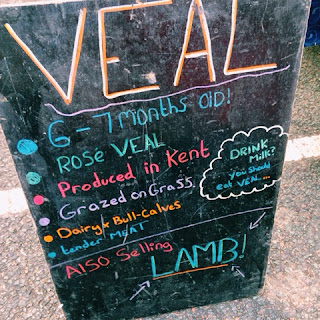 VEAL
6-7 months old!
Rosé VEAL
Produced in Kent
Grazed on Grass
Dairy x Bull-Calves
tender MEAT
DRINK
Milk?
you should
eat VEAL...
Also Selling
LAMB!